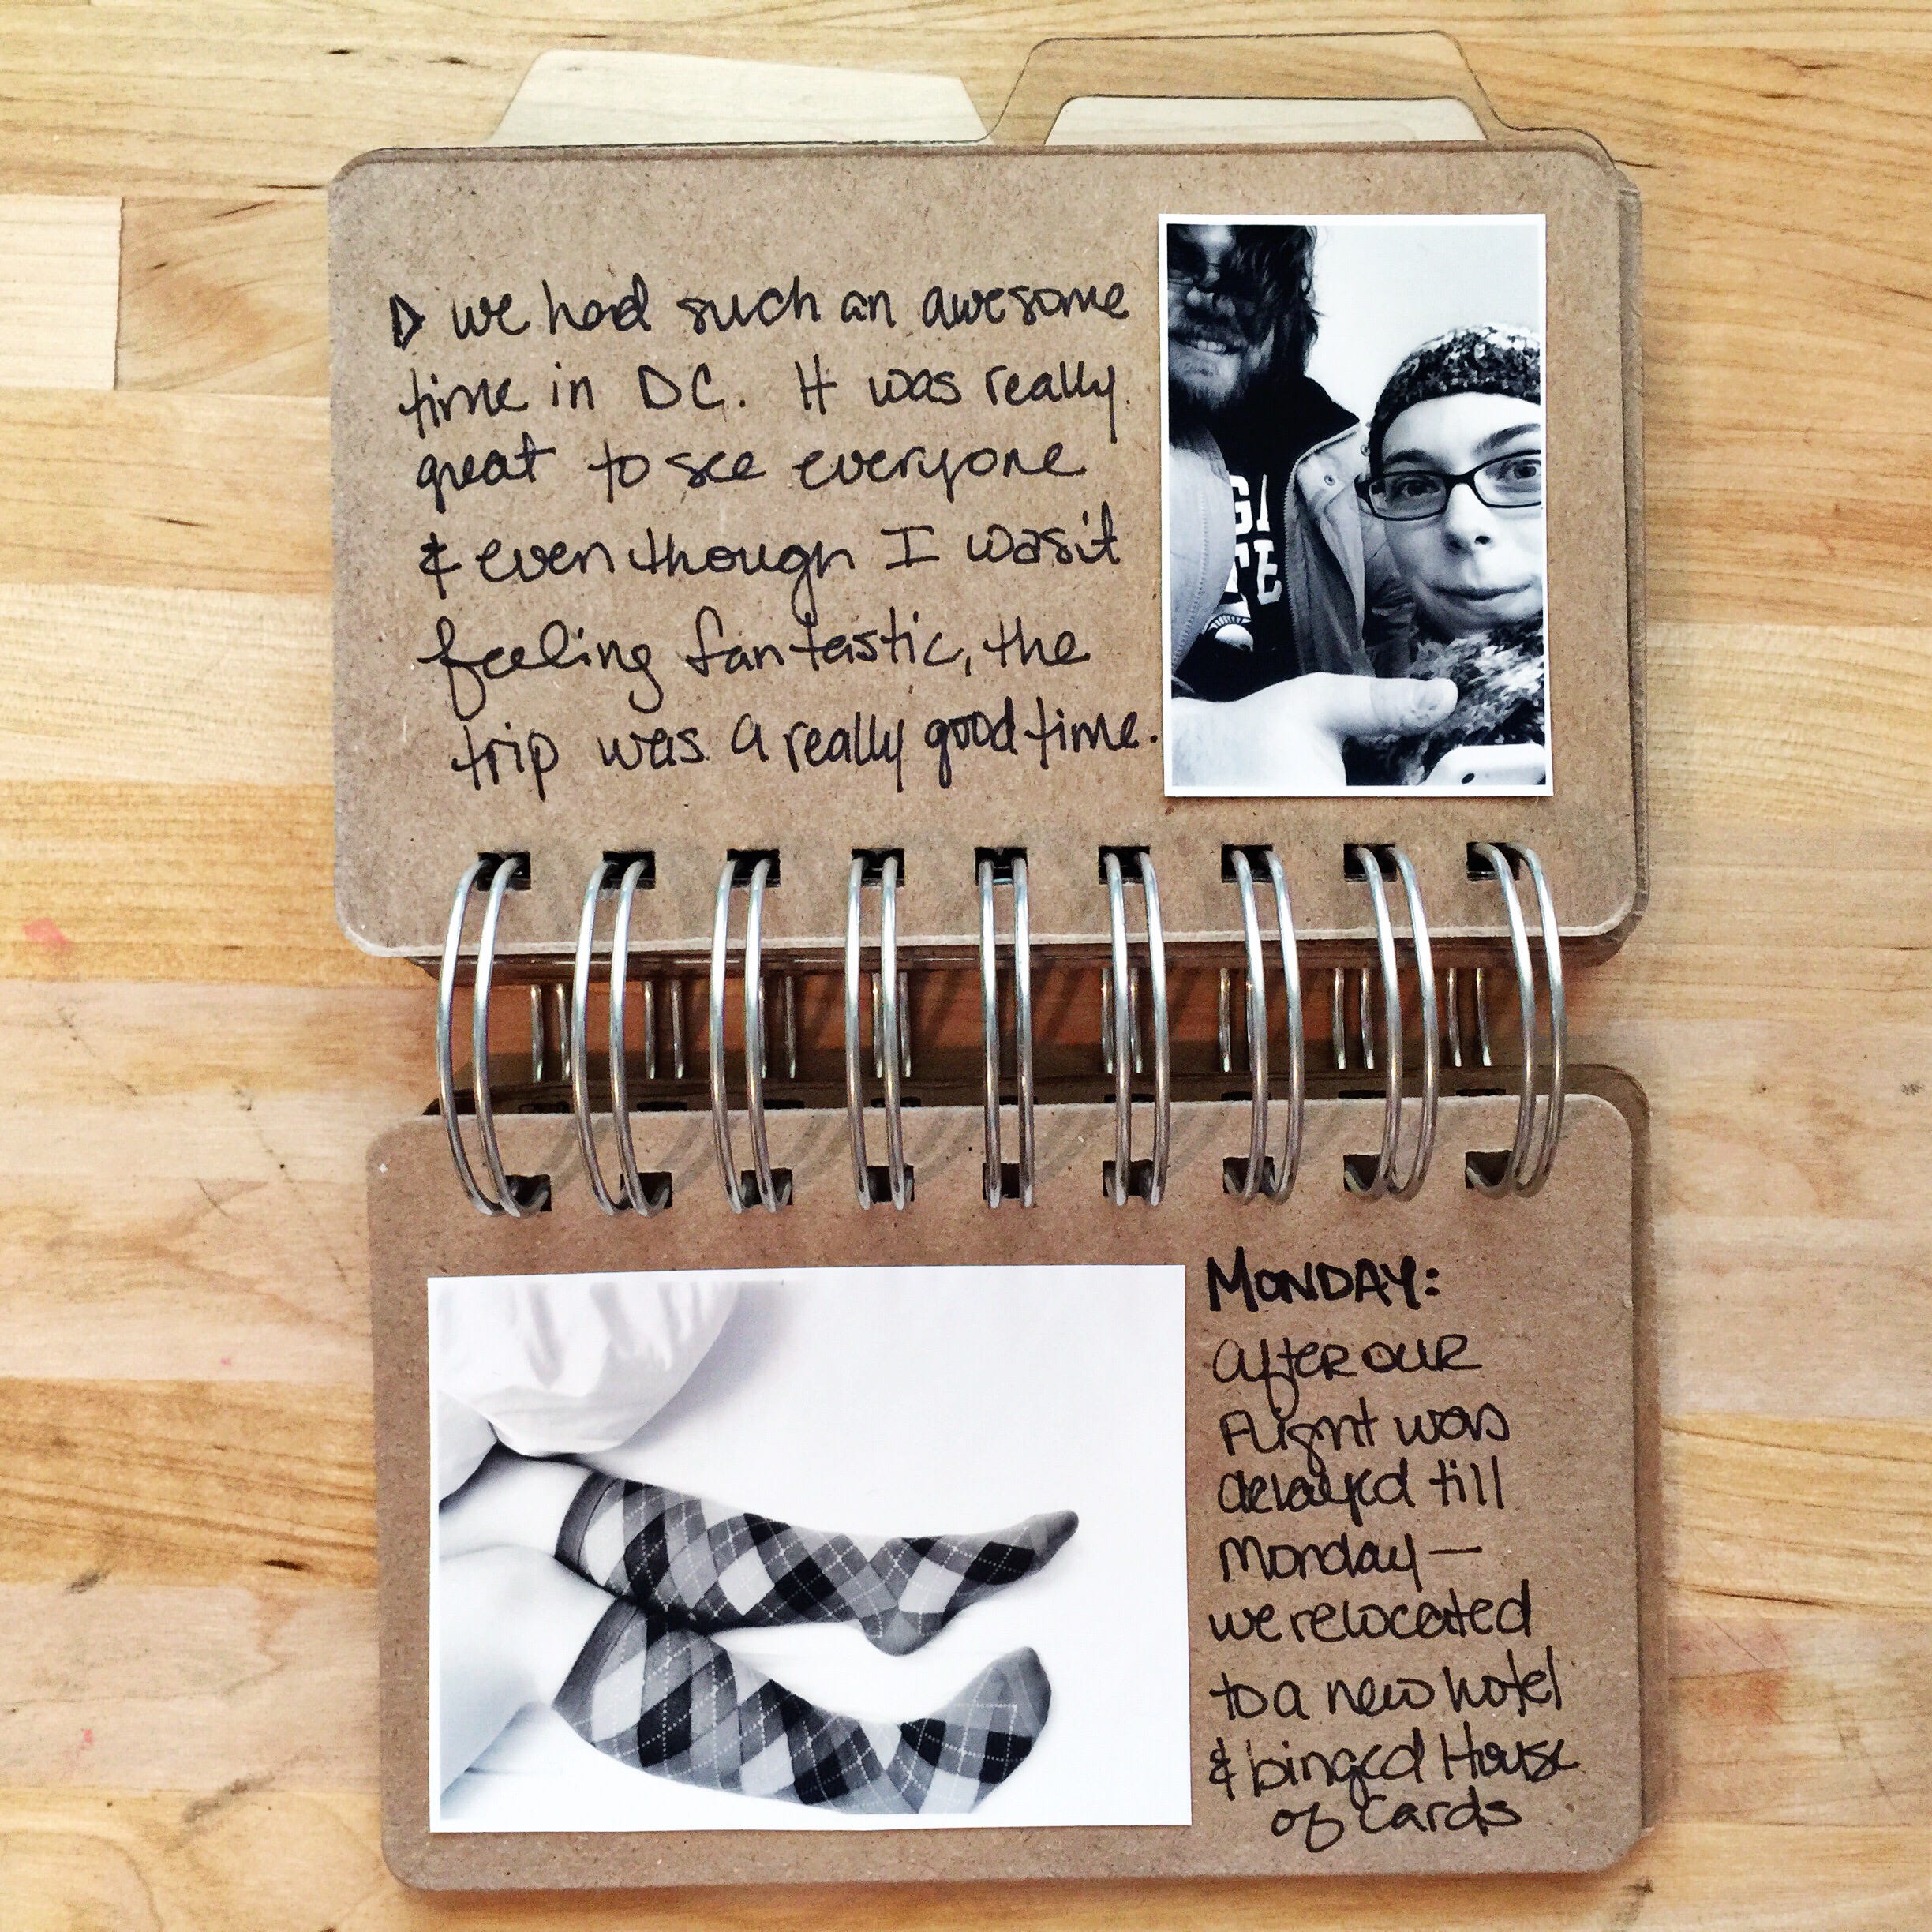 we had such an awesome
time in DC. It was really
great to see everyone
& even though I wasn't
feeling fantastic, the
trip was a really good time.
MONDAY:
after our
flight was
delayed till
Monday—
we relocated
to a new hotel
& binged House
of Cards